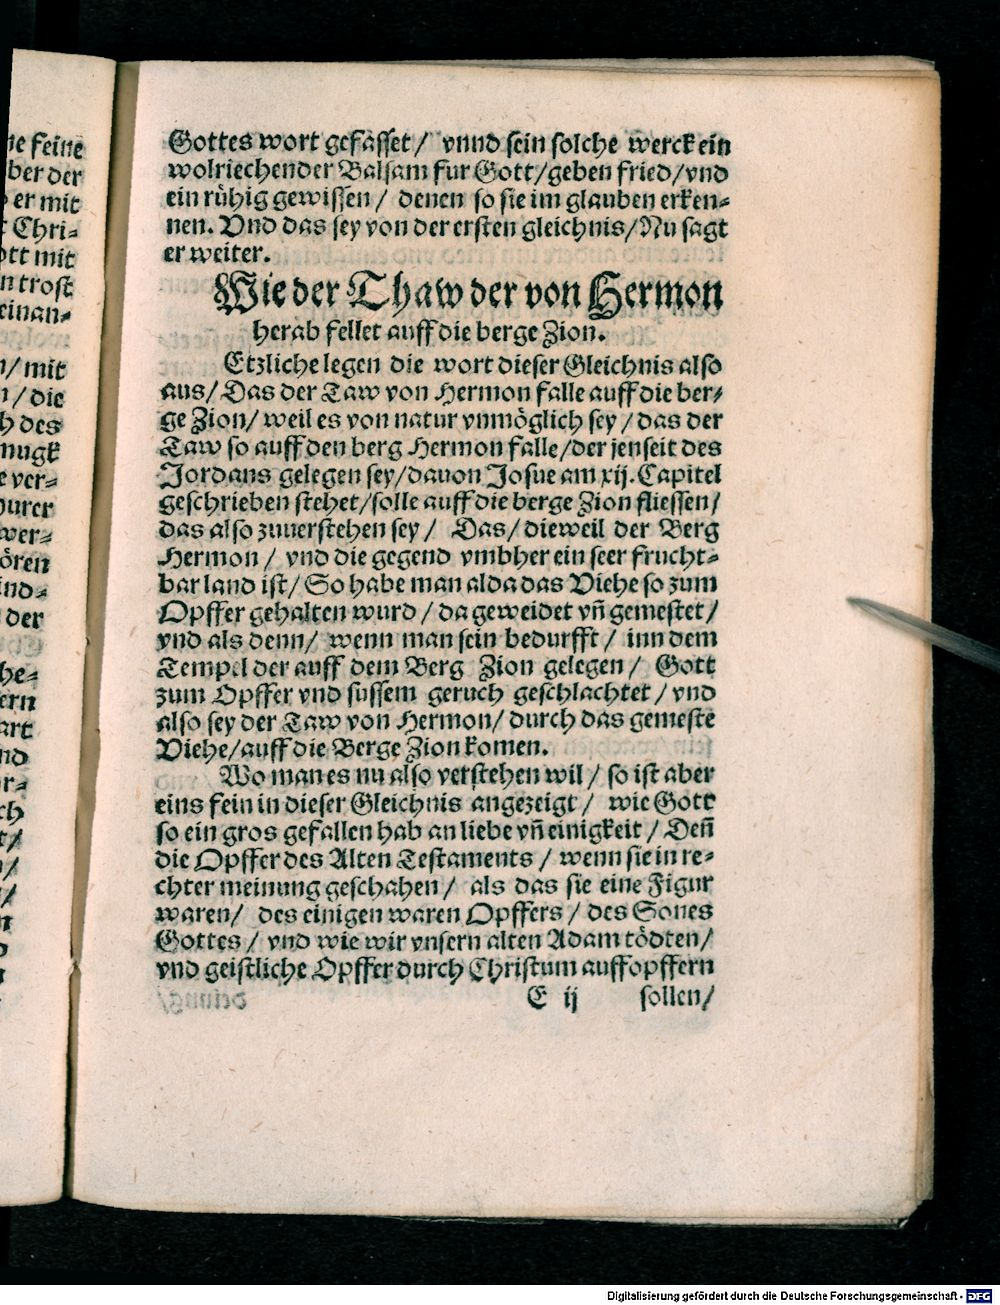 ne feine
ber der
er mit
Chri-
ott mit
n trost
einan-
n/ mit
n/ die
h des
mugk
e ver-
durer
wer-
ören
ind-
der
he-
ern
art
nd
r-
ch
t/
Gottes wort gefasset/ vnnd sein solche werck ein
wolriechender Balsam fur Gott/geben fried/vnd
ein rühig gewissen/ denen so sie im glauben erken-
nen. Vnd das sey von der ersten gleichnis/Nu sagt
er weiter.
Wie der Thaw der von Hermon
herab fellet auff die berge Zion.
Etzliche legen die wort dieser Gleichnis also
aus/ Das der Taw von Hermon falle auff die ber-
ge Zion/ weil es von natur vnmöglich sey/ das der
Taw so auff den berg Hermon falle/der jenseit des
Jordans gelegen sey/dauon Josue am xij. Capitel
geschrieben stehet/solle auff die berge Zion fliessen/
das also zuuerstehen sey/ Das/ dieweil der Berg
Hermon/ vnd die gegend vmbher ein seer frucht-
bar land ist/ So habe man alda das Viehe so zum
Opffer gehalten wurd/ da geweidet vñ gemestet/
vnd als denn/ wenn man sein bedurfft/ inn dem
Tempel der auff dem Berg Zion gelegen/ Gott
zum Opffer vnd sussem geruch geschlachtet/ vnd
also sey der Taw von Hermon/ durch das gemeste
Viehe/auff die Berge Zion komen.
Wo man es nu also verstehen wil/ so ist aber
eins fein in dieser Gleichnis angezeigt/ wie Gott
so ein gros gefallen hab an liebe vñ einigkeit/ Deñ
die Opffer des Alten Testaments/ wenn sie in re-
chter meinung geschahen/ als das sie eine Figur
waren/ des einigen waren Opffers/ des Sones
Gottes/ vnd wie wir vnsern alten Adam tödten/
vnd geistliche Opffer durch Christum auffopffern
E ij sollen/
Digitalisierung gefördert durch die Deutsche Forschungsgemeinschaft - DFG